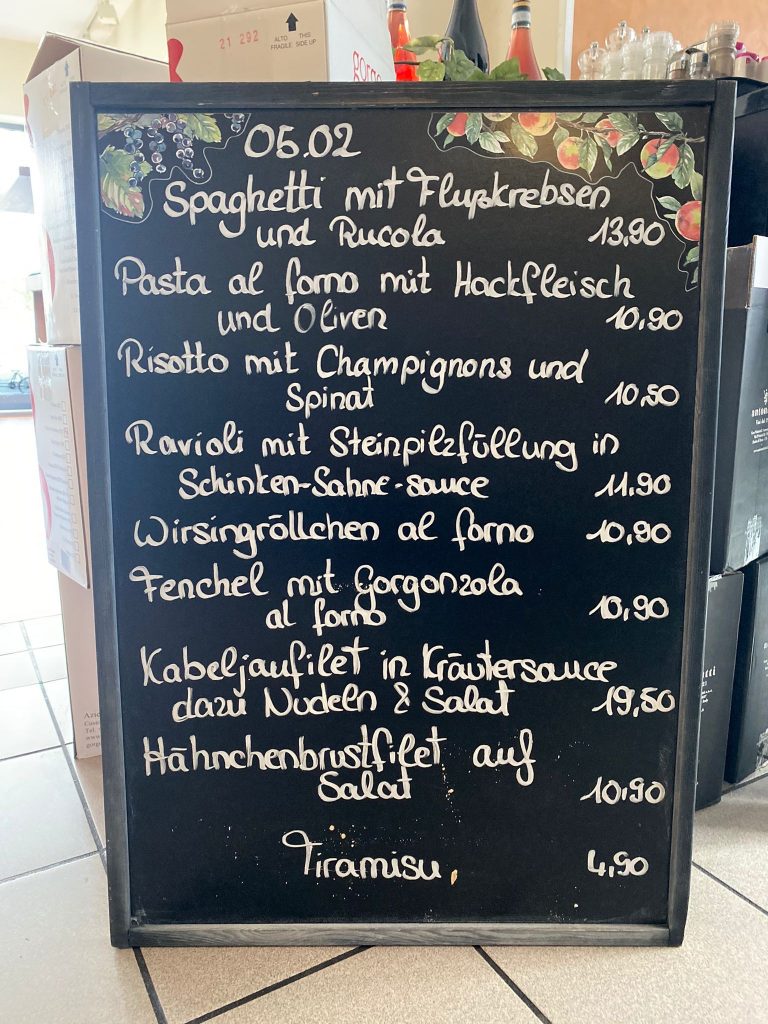 21 292
ALTO
FRAGILE
THIS
SIDE UP
05.02
Spaghetti mit Flußkrebsen
und Rucola 13,90
Pasta al forno mit Hackfleisch
und Oliven 10,90
Risotto mit Champignons und
Spinat 10,50
Ravioli mit Steinpilzfüllung in
Schinken-Sahne-sauce 11,90
Wirsingröllchen al forno 10,90
Fenchel mit Gorgonzola
al forno 10,90
Kabeljaufilet in Kräutersauce
dazu Nudeln & Salat 19,50
Hähnchenbrustfilet auf
Salat 10,90
Tiramisu 4,90